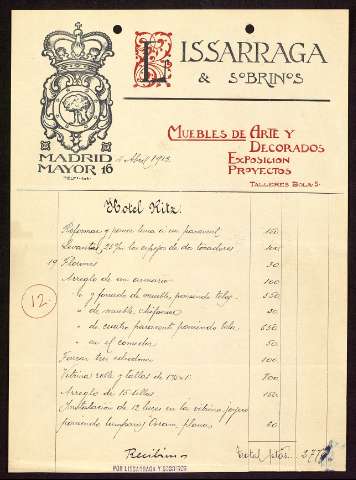 LISSARRAGA
& SOBRINOS
MUEBLES DE ARTE Y
DECORADOS
EXPOSICION
PROYECTOS
TALLERES BOLA-5-
MADRID
MAYOR 16
Abril 1913
Hotel Ritz.
Reformar y poner lona a un paravent 150
Levantar 25 los espejos de dos tocadores 100
19 Florones 30
Arreglo de un armario 100
" y forrado de mueble, poniendo tela 550
" de mueble, chifonier 30
" de cuatro paravent poniendo tela 550
" en el comedor 50
Forrar tres 100
Vitrina roble y tallas de 800
Arreglo de 15 sillas 150
Instalacion de 12 luces en la vitrina
poniendo lamparas Osram, planas
12.
Recibimos
Total Ptas.
POR LISSARRAGA Y SOBRINOS